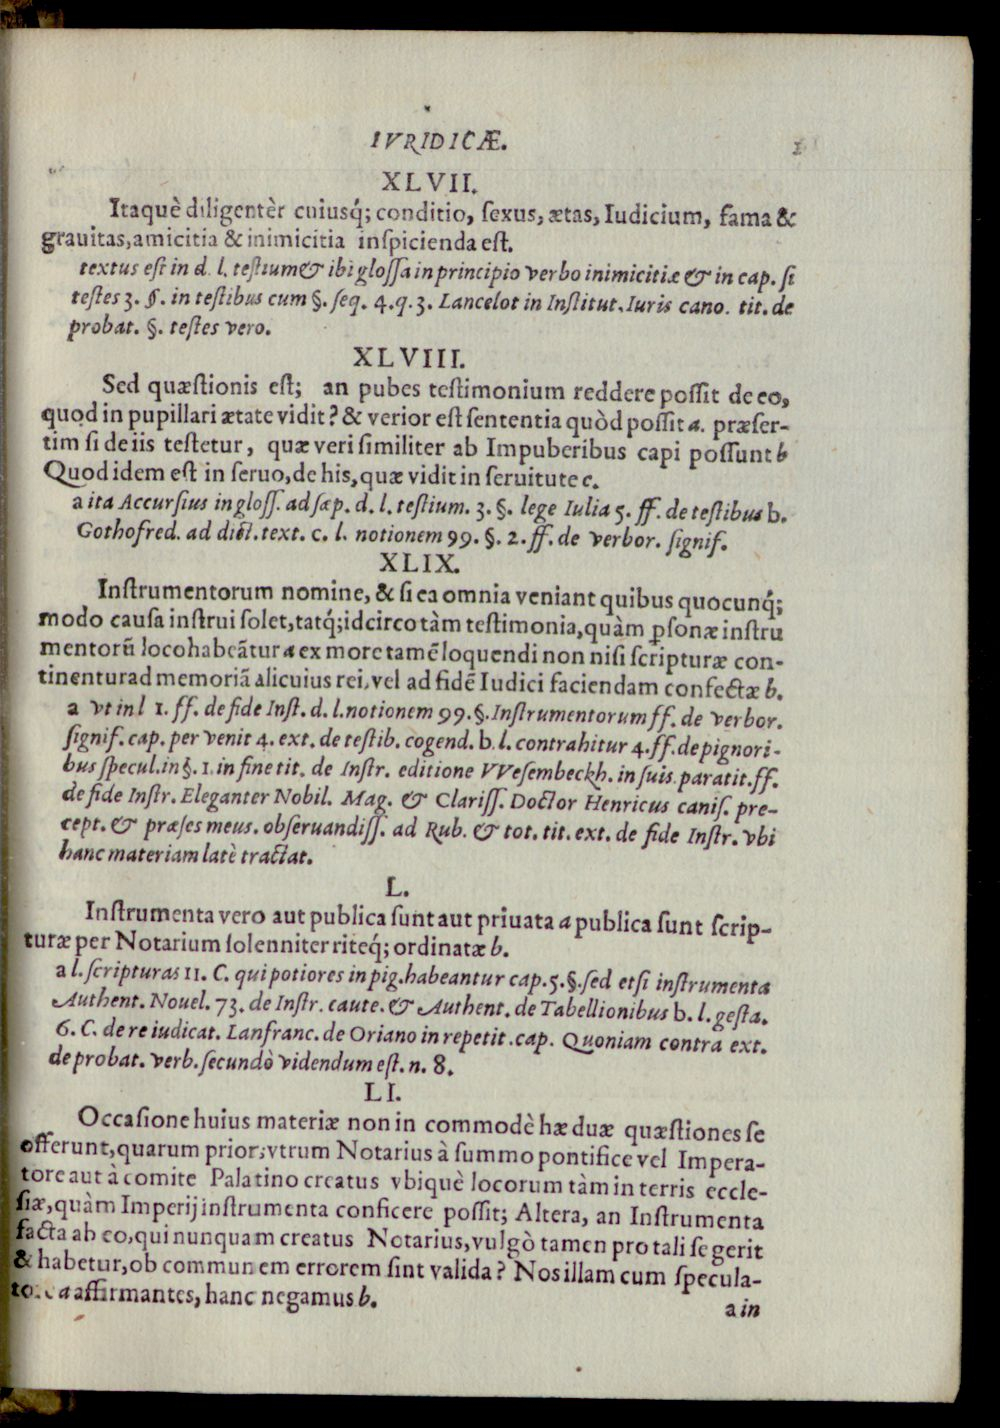 IVRIDICÆ.
XLVII.
Itaquè diligentèr cuiusq́; conditio, ſexus, ætas, Iudicium, fama &
grauitas, amicitia & inimicitia inſpicienda eſt.
textus eſt in d. l. teſtium & ibi gloſſa in principio verbo inimicitiæ & in cap. ſi
teſtes 3. §. in teſtibus cum §. ſeq. 4. q. 3. Lancelot in Inſtitut. Iuris cano. tit. de
probat. §. teſtes vero.
XLVIII.
Sed quæſtionis eſt; an pubes teſtimonium reddere poſſit de eo,
quod in pupillari ætate vidit? & verior eſt ſententia quòd poſſit a. præſer-
tim ſi de iis teſtetur, quæ veri ſimiliter ab Impuberibus capi poſſunt b
Quod idem eſt in ſeruo, de his, quæ vidit in ſeruitute c.
a ita Accurſius in gloſſ. ad ſæp. d. l. teſtium. 3. §. lege Iulia 5. ff. de teſtibus b.
Gothofred. ad dict. text. c. l. notionem 99. §. 2. ff. de verbor. ſignif.
XLIX.
Inſtrumentorum nomine, & ſi ea omnia veniant quibus quocunq́;
modo cauſa inſtrui ſolet, tatq́; idcirco tàm teſtimonia, quàm ꝑſonæ inſtru
mentorũ loco habeãtur a ex more tamẽ loquendi non niſi ſcripturæ con-
tinentur ad memoriã alicuius rei, vel ad fidẽ Iudici faciendam confectæ b.
a vt in l 1. ff. de fide Inſt. d. l. notionem 99. §. Inſtrumentorum ff. de verbor.
ſignif. cap. per venit 4. ext. de teſtib. cogend. b. l. contrahitur 4. ff. de pignori-
bus ſpecul. in §. 1. in fine tit. de Inſtr. editione VVeſembeckh. in ſuis paratit. ff.
de fide Inſtr. Eleganter Nobil. Mag. & Clariſſ. Doctor Henricus caniſ. pre-
cept. & præſes meus. obſeruandiſſ. ad Rub. & tot. tit. ext. de fide Inſtr. vbi
hanc materiam latè tractat.
L.
Inſtrumenta vero aut publica ſunt aut priuata a publica ſunt ſcrip-
turæ per Notarium ſolenniter riteq́; ordinatæ b.
a l. ſcripturas 11. C. qui potiores in pig. habeantur cap. 5. §. ſed etſi inſtrumenta
Authent. Nouel. 73. de Inſtr. caute. & Authent. de Tabellionibus b. l. geſta.
6. C. de re iudicat. Lanfranc. de Oriano in repetit. cap. Quoniam contra ext.
de probat. verb. ſecundò videndum eſt. n. 8.
LI.
Occaſione huius materiæ non in commodè hæ duæ quæſtiones ſe
offerunt, quarum prior, vtrum Notarius à ſummo pontifice vel Impera-
tore aut à comite Palatino creatus vbiquè locorum tàm in terris eccle-
ſiæ, quàm Imperij inſtrumenta conficere poſſit; Altera, an Inſtrumenta
facta ab eo, qui nunquam creatus Notarius, vulgò tamen pro tali ſe gerit
& habetur, ob communem errorem ſint valida? Nos illam cum ſpecula-
a affirmantes, hanc negamus b.
a in